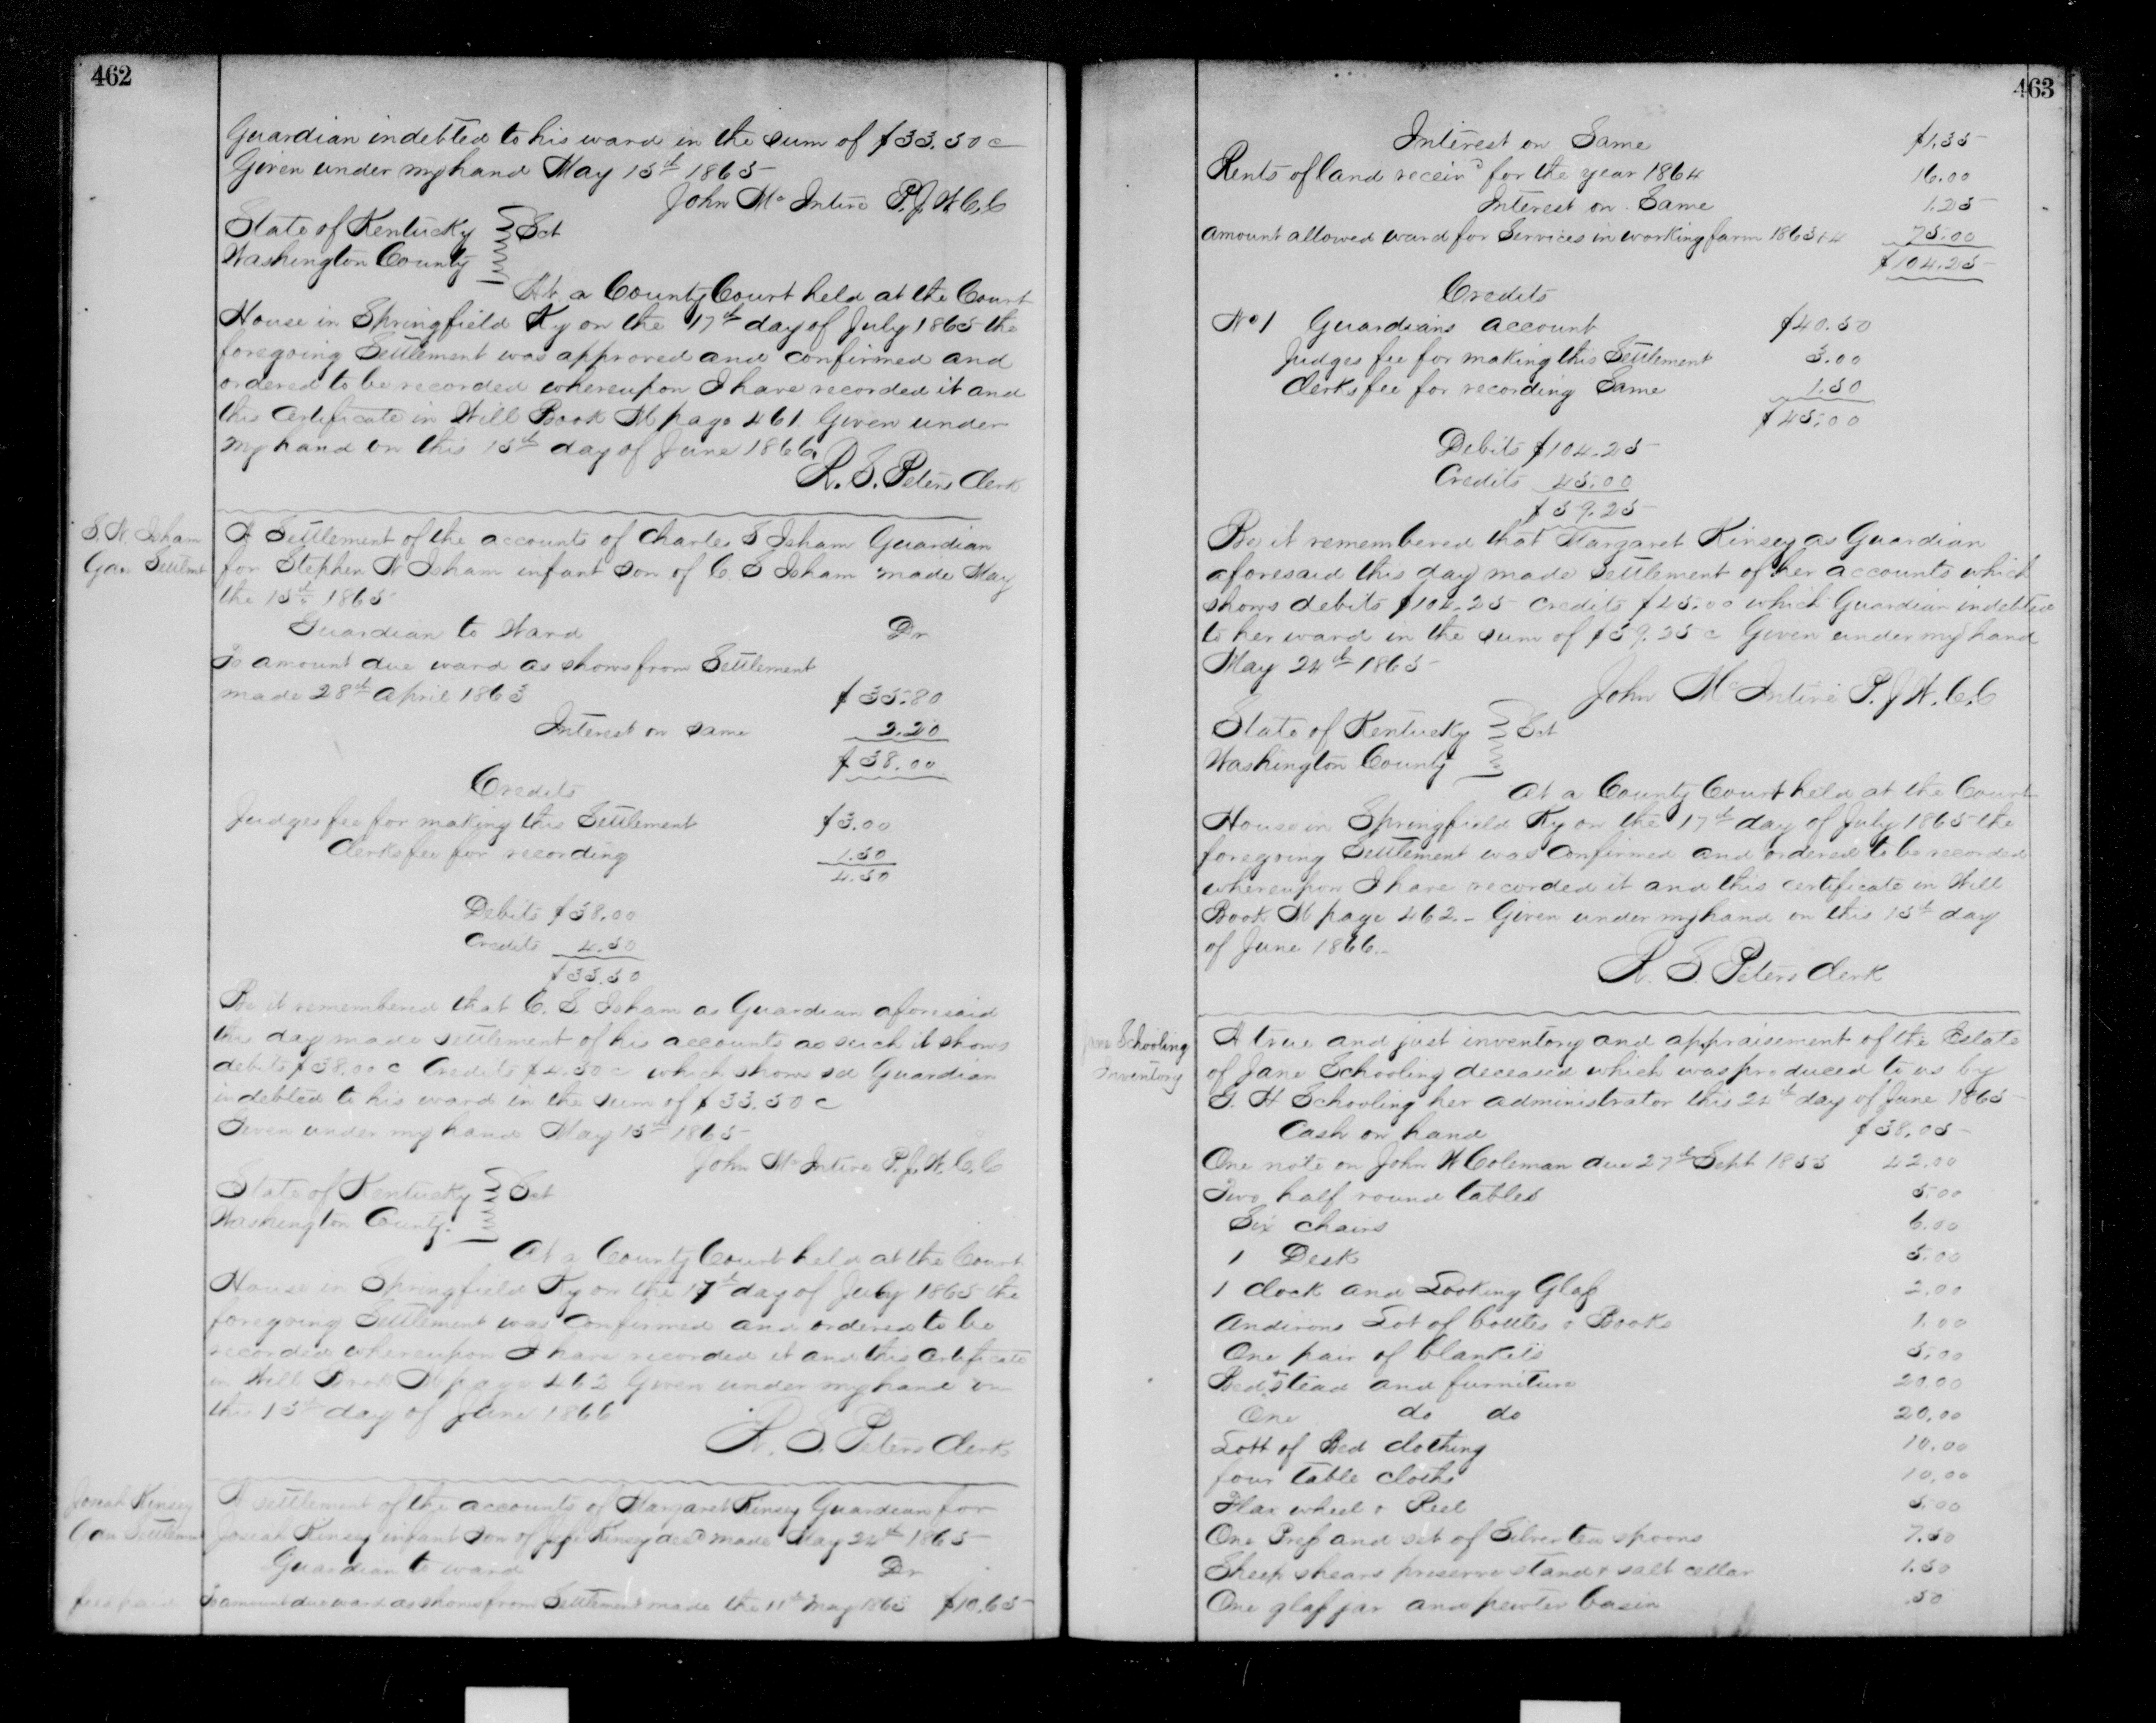 462
Guardian indebted to his ward in the sum of $33.50 c
Given under my hand May 15th 1865
John McIntire P.J.W.C.C
State of Kentucky } Sct
Washington County
At a County Court held at the Court
House in Springfield Ky on the 17th day of July 1865 the
foregoing Settlement was approved and confirmed and
ordered to be recorded whereupon I have recorded it and
this Certificate in Will Book M page 461. Given under
my hand on this 15th day of June 1866.
R. S. Peters Clerk
S. N. Isham
Gar Settlmt
A Settlement of the accounts of Charles S Isham Guardian
for Stephen N Isham infant son of C. S Isham made May
the 15th 1865
Guardian to Ward Dr
To amount due ward as shown from Settlement
made 28th April 1863 $35.80
Interest on same 2.20
$38.00
Credits
Judges fee for making this Settlement $3.00
Clerks fee for recording 1.50
4.50
Debits $38.00
Credits 4.50
$33.50
Be it remembered that C. S. Isham as Guardian aforesaid
this day made settlement of his accounts as such it shows
debits $38.00 c Credits $4.50 c which shows sd Guardian
indebted to his ward in the sum of $33.50 c
Given under my hand May 15th 1865
John McIntire P.J.W.C.C
State of Kentucky } Sct
Washington County.
At a County Court held at the Court
House in Springfield Ky on the 17th day of July 1865 the
foregoing Settlement was Confirmed and ordered to be
recorded whereupon I have recorded it and this Certificate
in Will Book M page 462 Given under my hand on
this 15th day of June 1866
R. S. Peters Clerk
Josiah Kinsey
Gan Settlement
A settlement of the accounts of Margaret Kinsey Guardian for
Josiah Kinsey infant son of Kinsey decd made May 24th 1865
Guardian to ward Dr
fees paid
To amount due ward as shown from Settlement made the 11th May 1863 $10.65
463
Interest on Same $1.35
Rents of land receivd for the year 1864 16.00
Interest on Same 1.25
amount allowed ward for Services in working farm 1863 & 4 75.00
$104.25
Credits
No 1 Guardians account $40.50
Judges fee for making this Settlement 3.00
Clerks fee for recording Same 1.50
$45.00
Debits $104.25
Credits 45.00
$59.25
Be it remembered that Margaret Kinsey as Guardian
aforesaid this day made settlement of her accounts which
shows debits $104.25 credits $45.00 which Guardian indebted
to her ward in the sum of $59.25 c Given under my hand
May 24th 1865
John McIntire P.J.W.C.C
State of Kentucky } Sct
Washington County
At a County Court held at the Court
House in Springfield Ky on the 17th day of July 1865 the
foregoing Settlement was Confirmed and ordered to be recorded
whereupon I have recorded it and this certificate in Will
Book M page 462. Given under my hand on this 15th day
of June 1866.
R. S. Peters Clerk
Jane Schooling
Inventory
A true and just inventory and appraisement of the Estate
of Jane Schooling deceased which was produced to us by
G. H Schooling her administrator this 24th day of June 1865
Cash on hand $38.05
One note on John W Coleman due 27th Sept 1855 42.00
Two half round tables 5.00
Six chairs 6.00
1 Desk 5.00
1 clock and Looking Glass 2.00
Andirons Lot of bottles & Books 1.00
One pair of blankets 5.00
Bedstead and furniture 20.00
One do do 20.00
Lott of Bed clothing 10.00
four table cloths 10.00
Flax wheel & Reel 5.00
One Press and set of Silver tea spoons 7.50
Sheep shears preserve stand & salt cellar 1.50
One glass jar and pewter basin .50